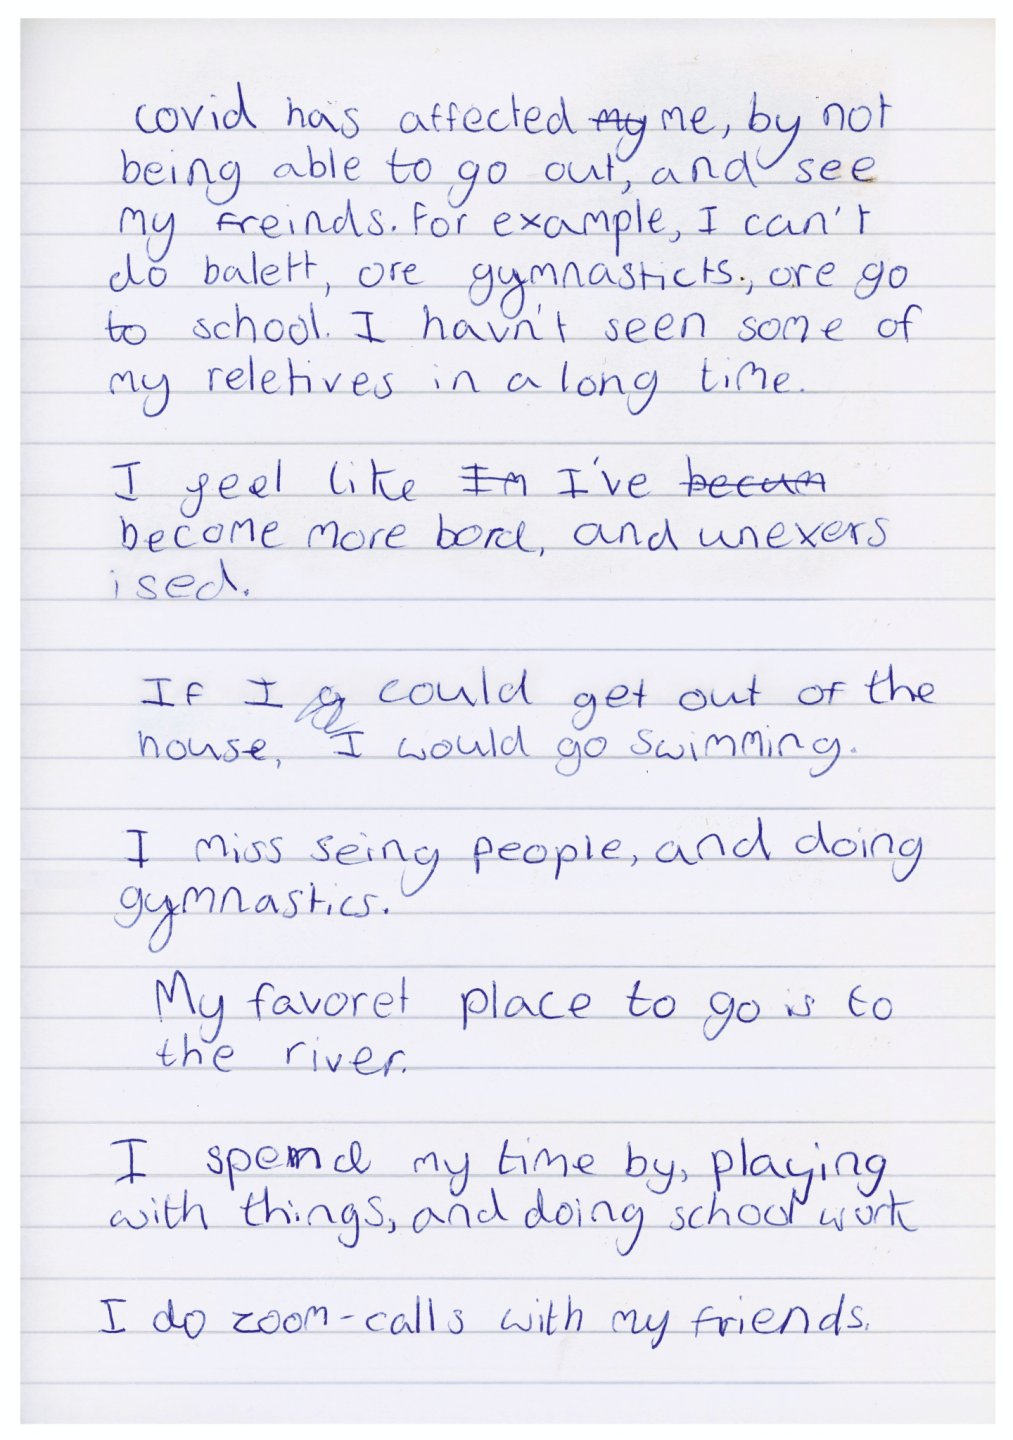 covid has affected my me, by not
being able to go out, and see
my freinds. For example, I can't
do balett, ore gymnasticts., ore go
to school. I havn't seen some of
my reletives in a long time.
I feel like Im I've becum
become more bord, and unexers
ised.
If I g could get out of the
house, I would go swimming.
I miss seing people, and doing
gymnastics.
My favoret place to go is to
the river.
I spend my time by, playing
with things, and doing school work
I do zoom-calls with my friends.